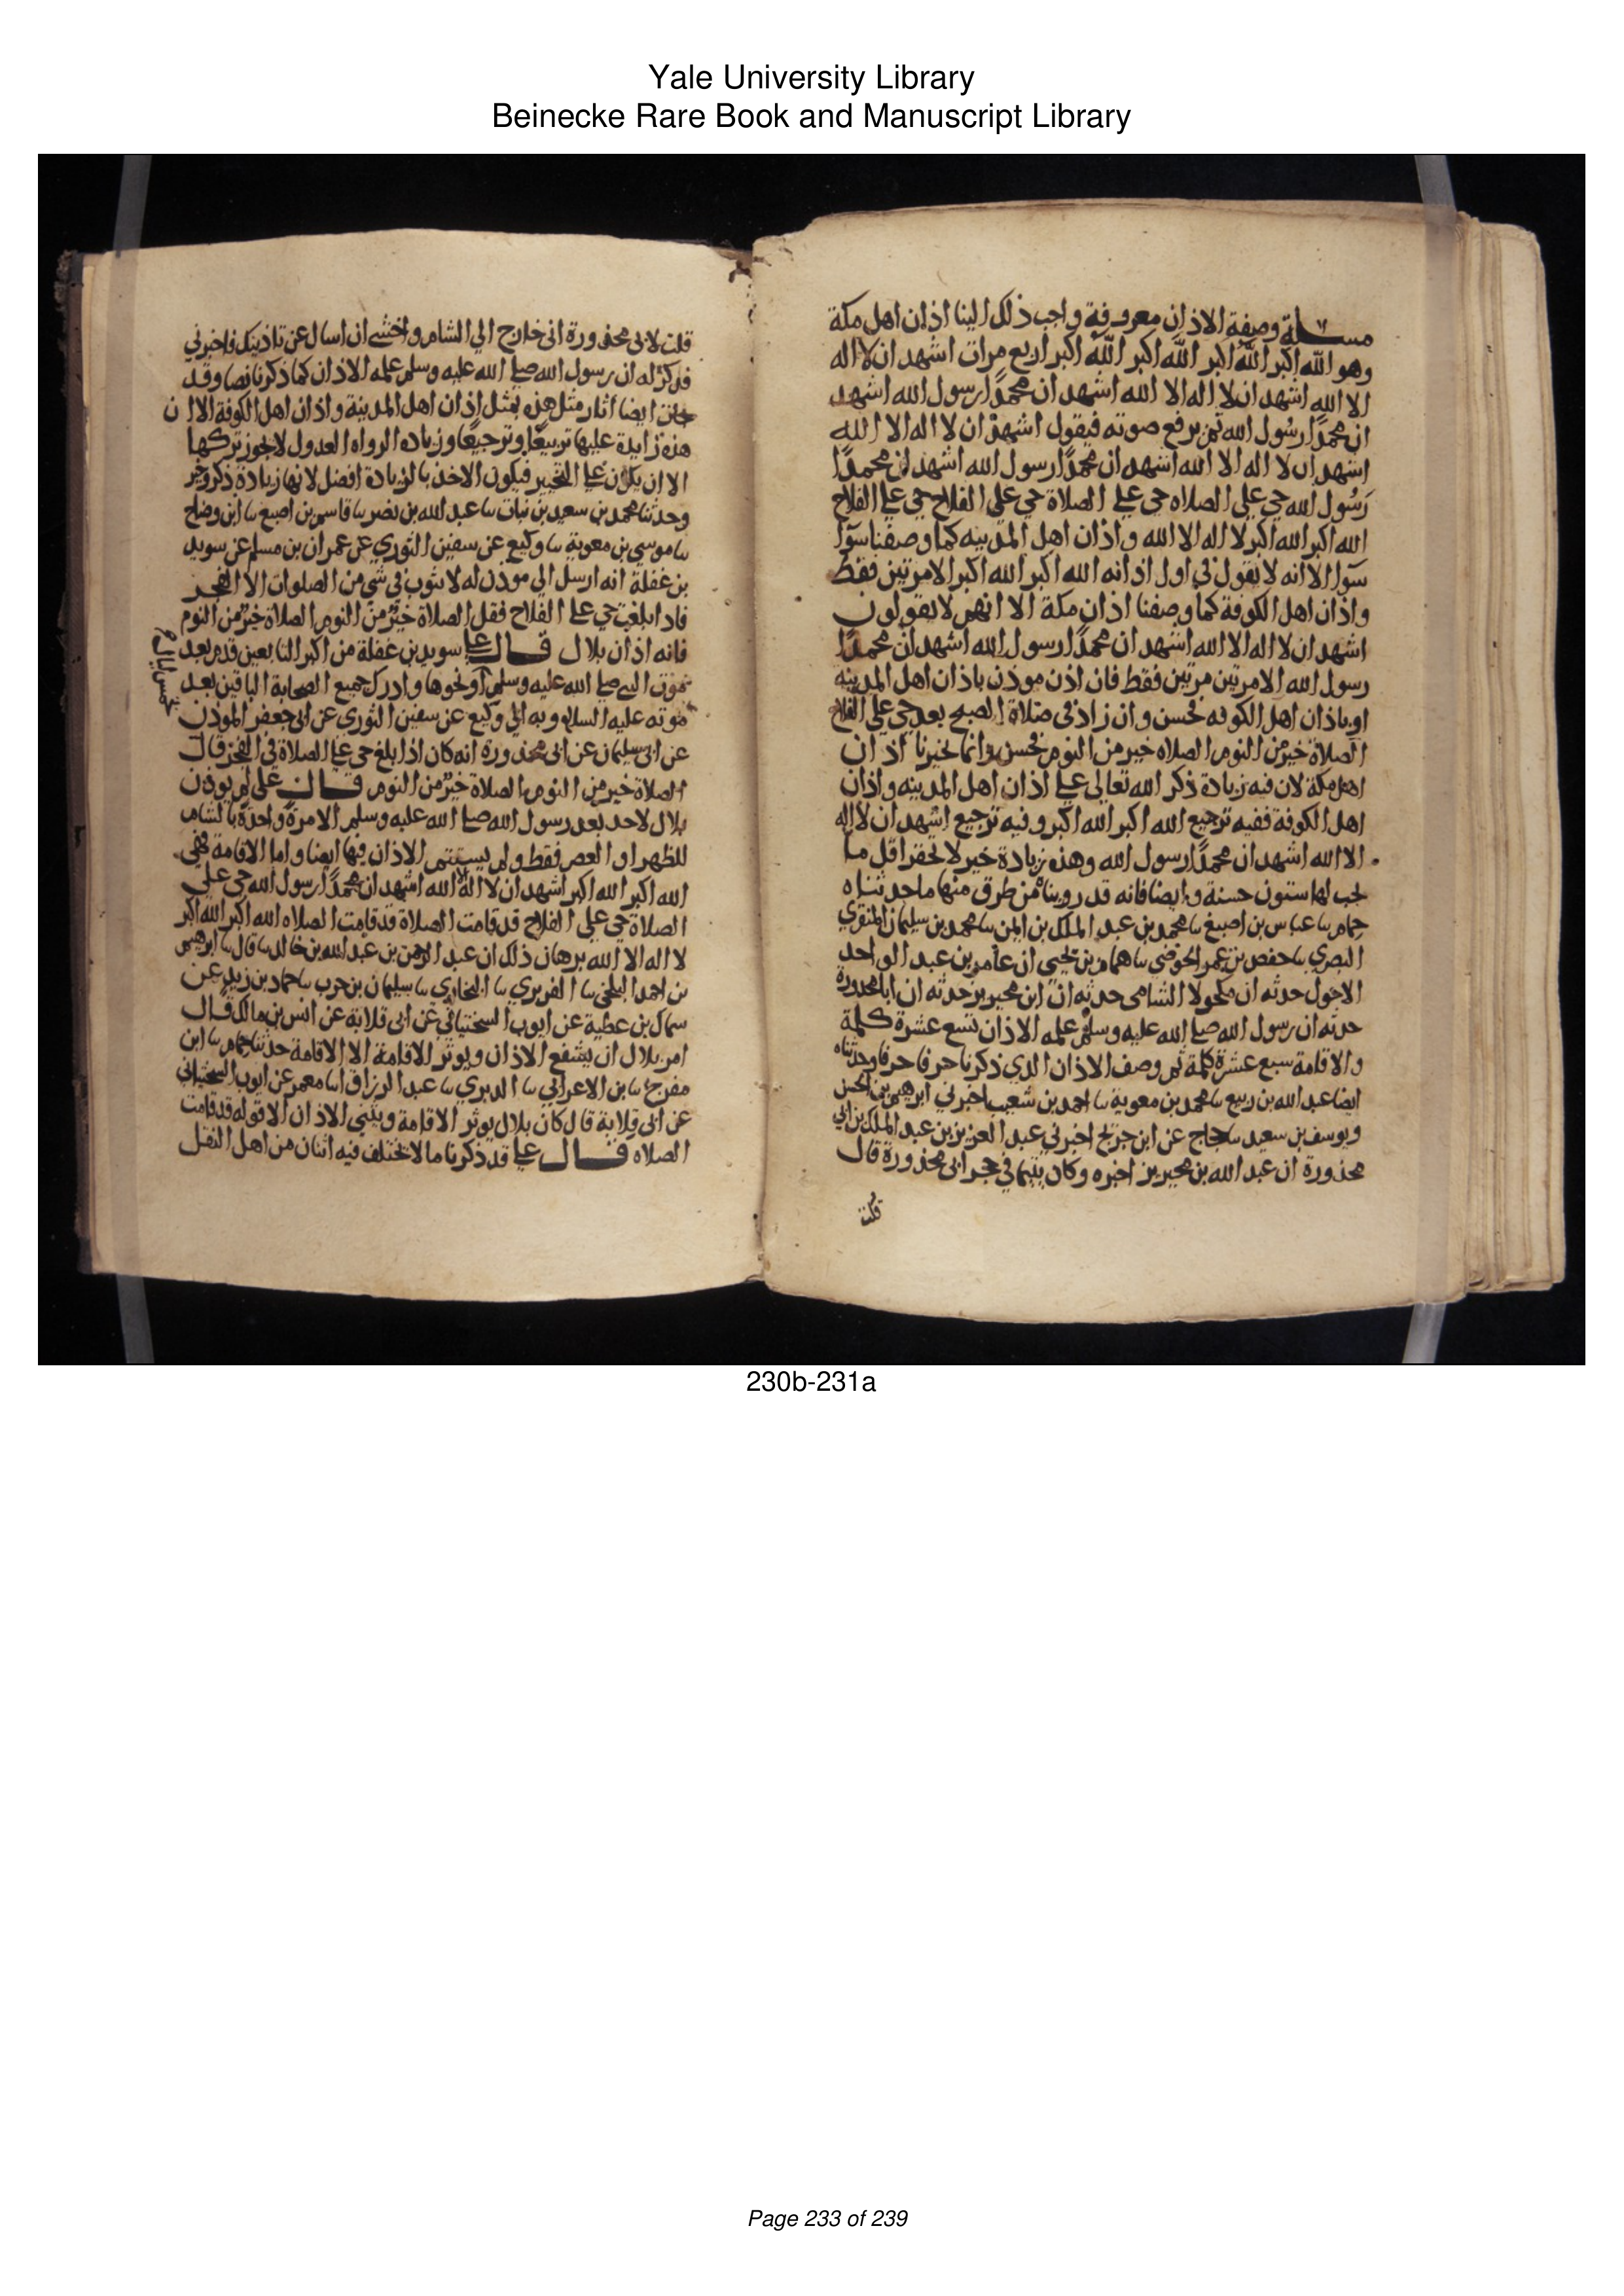 Yale University Library
Beinecke Rare Book and Manuscript Library
مسـلة وصفة الاذان معروفة واحب ذلك الينا اذان اهل مكة
وهو الله اكبر الله اكبر الله اكبر الله اكبر اربع مرات اشهد ان لا اله
الا الله اشهد ان لا اله الا الله اشهد ان محمدًا رسول الله اشهد
ان محمدًا رسُول الله ثم يرفع صوته فيقول اشهد ان لا اله الا الله
اشهد ان لا اله الا الله اشهد ان محمدًا رسول الله اشهد ان محمدًا
رَسُول الله حي على الصلاه حي على الصلاة حي على الفلاح حي على الفلاح
الله اكبر الله اكبر لا اله الا الله واذان اهل المدينه كما وصفنا سوّا
سوّا الا انه لا يقول في اول اذانه الله اكبر الله اكبر الا مرتين فقط
واذان اهل الكوفة كما وصفنا اذان مكة الا انهم لا يقولون
اشهد ان لا اله الا الله اشهد ان محمدًا رسول الله اشهد ان محمدًا
رسول الله الا مرتين مرتين فقط فان اذن موذن باذان اهل المدينه
او باذان اهل الكوفه فحسن وان زاد في صلاة الصبح بعد حي على الفلاح
الصلاة خير من النوم الصلاه خير من النوم فحسن وانما تخيرنا اذان
اهل مكة لان فيه زيادة ذكر الله تعالى على اذان اهل المدينه واذان
اهل الكوفة ففيه ترجيع الله اكبر الله اكبر وفيه ترجيع اشهد ان لا اله
الا الله اشهد ان محمدًا رسول الله وهذه زيادة خير لا تحقر اقل ما
يجب لها ستون حسنة وايضا فانه قد رويناه من طرق منها ما حدثناه
حمام ںا عباس بن اصبغ ںا محمد بن عبد الملك بن ايمن ںا محمد بن سليمان المنقري
البصري ںا حفص بن عمر الحوضي ںا همام بن يحيى ان عامر بن عبد الواحد
الاحول حدثه ان مكحولا الشامى حدثه ان ابن محيريز حدثه ان ابا محذورة
حدثه ان رسول الله صلى الله عليه وسلم علمه الاذان تسع عشرة كلمة
والاقامة سبع عشرة كلمة ثم وصف الاذان الذي ذكرنا حرفا حرفا وحدثناه
ايضا عبد الله بن ربيع ںا محمد بن معوية ںا احمد بن شعيب اخبرني ابرهيم بن الحسن
ويوسف بن سعيد ںا حجاج عن ابن جريج اخبرني عبد العزيز بن عبد الملك بن ابي
محذورة ان عبد الله بن محيريز اخبره وكان يتيما في حجر ابي محذورة قال
قلت
قلت لابي محذورة اني خارج الي الشام واخشى ان اسال عن تاذينك فاخبرني
فذكر له ان رسول الله صلى الله عليه وسلم علمه الاذان كما ذكرنا نصا وقد
جات ايضا اثار مثل هذه بمثل اذان اهل المدينة واذان اهل الكوفة الا ان
هذه زايدة عليها تربيعًا وترجيعًا وزيادة الرواه العدول لا يجوز تركها
الا ان يكون على التخيير فيكون الاخذ بالزيادة افضل لانها زيادة ذكر وخير
وحدثنا محمد بن سعيد بن نبات ںا عبد الله بن نصر ںا قاسم بن اصبغ ںا ابن وضاح
ںا موسي بن معوية ںا وكيع عن سفين الثوري عن عمران بن مسلم عن سويد
بن غفلة انه ارسل الي موذن له لا يثوب في شي من الصلوات الا الفجر
فاذا بلغت حي على الفلاح فقل الصلاة خيرٌ من النوم الصلاة خيرٌ من النوم
فانه اذان بلال قـال على سويد بن غفلة من اكبر التابعين قدم بعد
موت النبي صلى الله عليه وسلم او نحوها وادرك جميع الصحابة الباقين بعد
موته عليه السلام وبه الي وكيع عن سفين الثوري عن ابي جعفر الموذن
عن ابي سليمان عن ابي محذورة انه كان اذا بلغ حي على الصلاة في الفجر قال
الصلاة خير من النوم الصلاة خيرٌ من النوم قـال على لم يوذن
بلال لاحد بعد رسول الله صلى الله عليه وسلم الا مرةً واحدةً بالشام
للظهر او العصر فقط ولم يستتم الاذان فيها ايضا واما الاقامة فهي
الله اكبر الله اكبر اشهد ان لا اله الا الله اشهد ان محمدًا رسول الله حي على
الصلاة حي على الفلاح قد قامت الصلاة قد قامت الصلاه الله اكبر الله اكبر
لا اله الا الله برهان ذلك ان عبد الرحمن بن عبد الله بن خالد ںا قال ںا ابرهيم
بن احمد البلخي ںا الفربري ںا البخاري ںا سليمان بن حرب ںا حماد بن زيد عن
سماك بن عطية عن ايوب السختياني عن ابي قلابة عن انس بن مالك قال
امر بلال ان يشفع الاذان ويوتر الاقامة الا الاقامة حدثنا حمام ںا ابن
مفرج ںا بن الاعرابي ںا الدبري ںا عبد الرزاق اںا معمر عن ايوب السختياني
عن ابي قلابة قال كان بلال يوتر الاقامة ويثني الاذان الا قوله قد قامت
الصلاه قـال على قد ذكرنا ما لا يختلف فيه اثنان من اهل النقل
230b-231a
Page 233 of 239